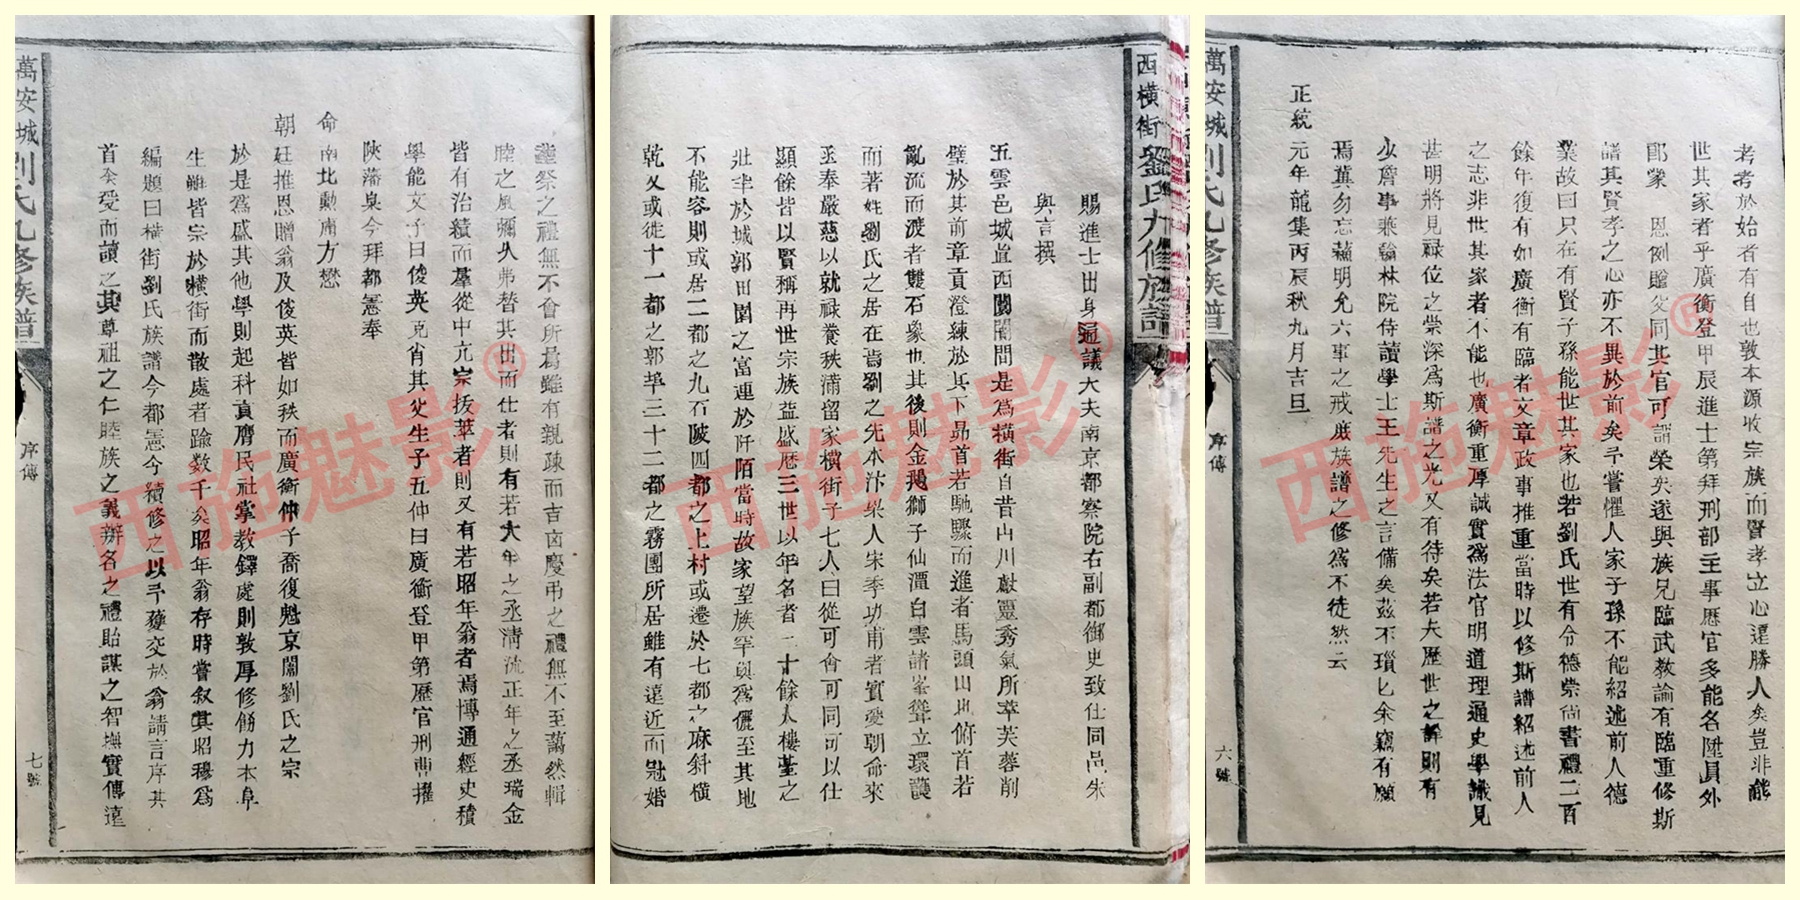 考考於始者有自也敦本源收宗族而賢孝立心遠勝人矣豈非能
世其家者乎廣衡登甲辰進士第拜刑部主事歷官多能名陞員外
郎蒙 恩例贈父同其官可謂榮矣遂與族兄臨武教諭有臨重修斯
譜其賢孝之心亦不異於前矣予嘗懼人家子孫不能紹述前人德
業故曰只在有賢子孫能世其家也若劉氏世有令德崇尚書禮二百
餘年復有如廣衡有臨者文章政事推重當時以修斯譜紹述前人
之志非世其家者不能也廣衡重厚誠實為法官明道理通史學識見
甚明將見祿位之崇深為斯譜之光又有待矣若夫歷世之詳則有
少詹事兼翰林院侍讀學士王先生之言備矣茲不瑣匕余竊有願
焉冀勿忘蘭明允六事之戒庶族譜之修為不徒然云
正統元年龍集丙辰秋九月吉旦
萬安城劉氏九修族譜
序傳
六號
西橫街劉氏九修族譜
賜進士出身通議大夫南京都察院右副都御史致仕同邑朱
與言撰
五雲邑城直西闤闠間是為橫街自昔山川獻靈秀氣所萃芙蓉削
壁於其前章貢澄練於其下昴首若馳驟而進者馬頭山也俯首若
亂流而渡者雙石象也其後則金鵝獅子仙潭白雲諸峯聳立環護
而著姓劉氏之居在焉劉之先本汴梁人宋季功甫者實受朝命來
丞奉嚴慈以就祿養秩滿留家橫街子七人曰從可會可同可以仕
顯餘皆以賢稱再世宗族益盛歷三世以年名者二十餘人樓臺之
壯半於城郭田園之富連於阡陌當時故家望族罕與為儷至其地
不能容則或居二都之九石陂四都之上村或遷於七都之麻斜橫
乾又或徙十一都之郭埠三十二都之霧團所居雖有遠近而冠婚
喪祭之禮無不會所居雖有親疎而吉凶慶弔之禮無不至藹然輯
睦之風彌久弗替其出而仕者則有若大年之丞清流正年之丞瑞金
皆有治績而羣從中亢宗拔萃者則又有若昭年翁者焉博通經史積
學能文子曰俊英克肖其父生子五仲曰廣衡登甲第歷官刑曹擢
陝藩臬今拜都憲奉
命南北勳庸方懋
朝廷推恩贈翁及俊英皆如秩而廣衡仲子喬復魁京闈劉氏之宗
於是為盛其他學則起科貢膺民社掌教鐸處則敦厚修餙力本阜
生雖皆宗於橫街而散處者踰數千矣昭年翁存時嘗叙其昭穆為
編題曰橫街劉氏族譜今都憲今續修之以予獲交於翁請言序其
首余受而讀之其尊祖之仁睦族之義辨名之禮貽謀之智撫實傳遠
萬安城劉氏九修族譜
序傳
七號
西施魅影®
西施魅影®
西施魅影®